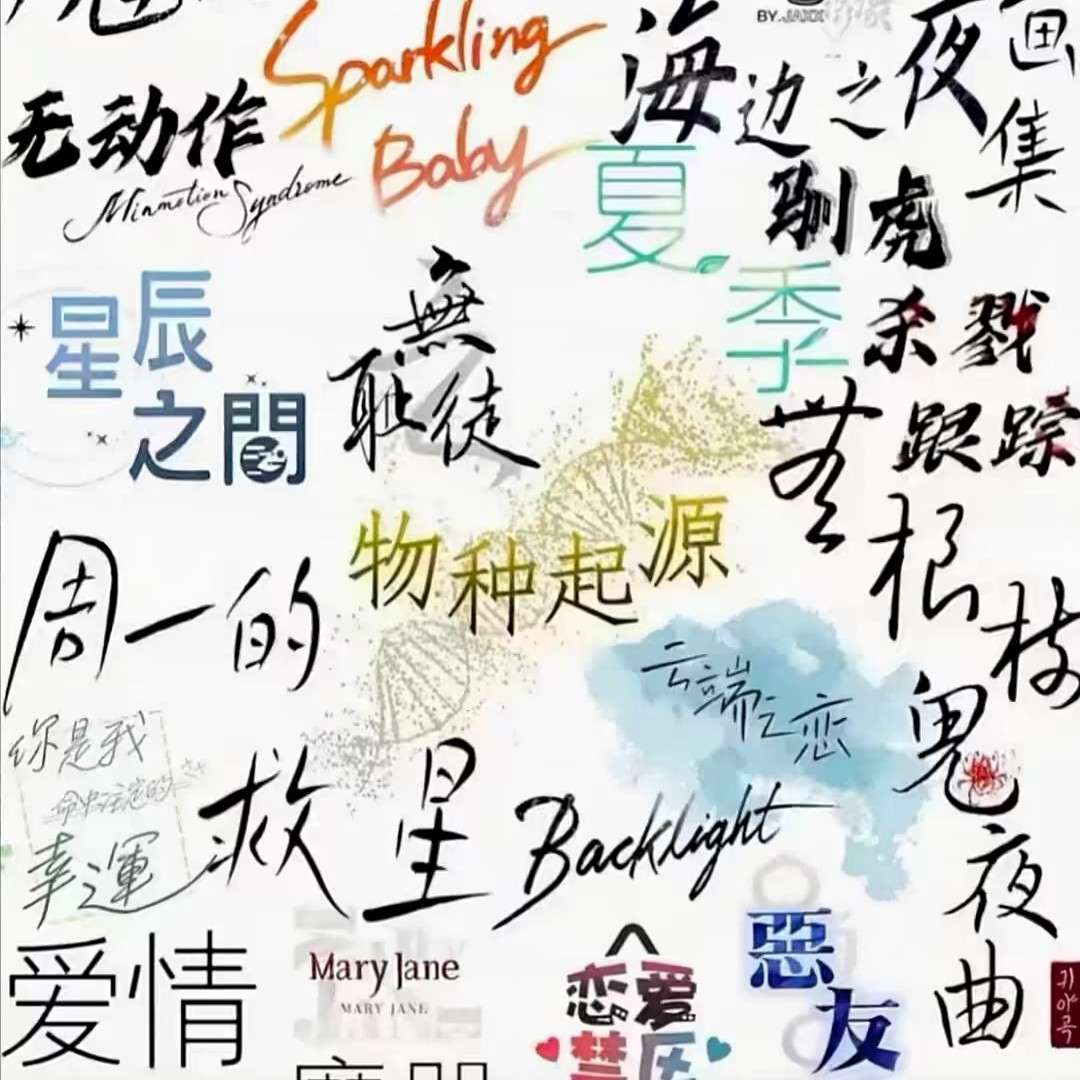 BY.JAXX
无动作
Minmotion Syndrome
Sparkling
Baby
海边之夜
画集
夏季
驯虎
星辰之間
無耻徒
杀戮
跟踪
物种起源
无根枝
周一的
救星
云端之恋
你是我
命中注定的
幸運
Backlight
鬼夜曲
귀야곡
爱情
Mary Jane
MARY JANE
恋爱
禁区
惡友